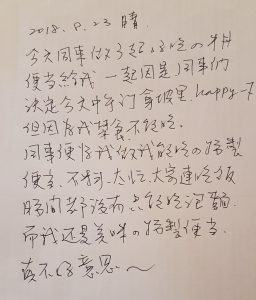 2018.8.23 晴.
今天同事做了超好吃の
便當給我 一起因是同事們
決定今天中午訂拿坡里 happy一下
但因為我禁食不能吃.
同事便幫我做我能吃の特製
便當. 不過太忙, 大家連吃飯
時間都沒有只能吃泡麵.
而我還是美味の特製便當.
真不好意思～